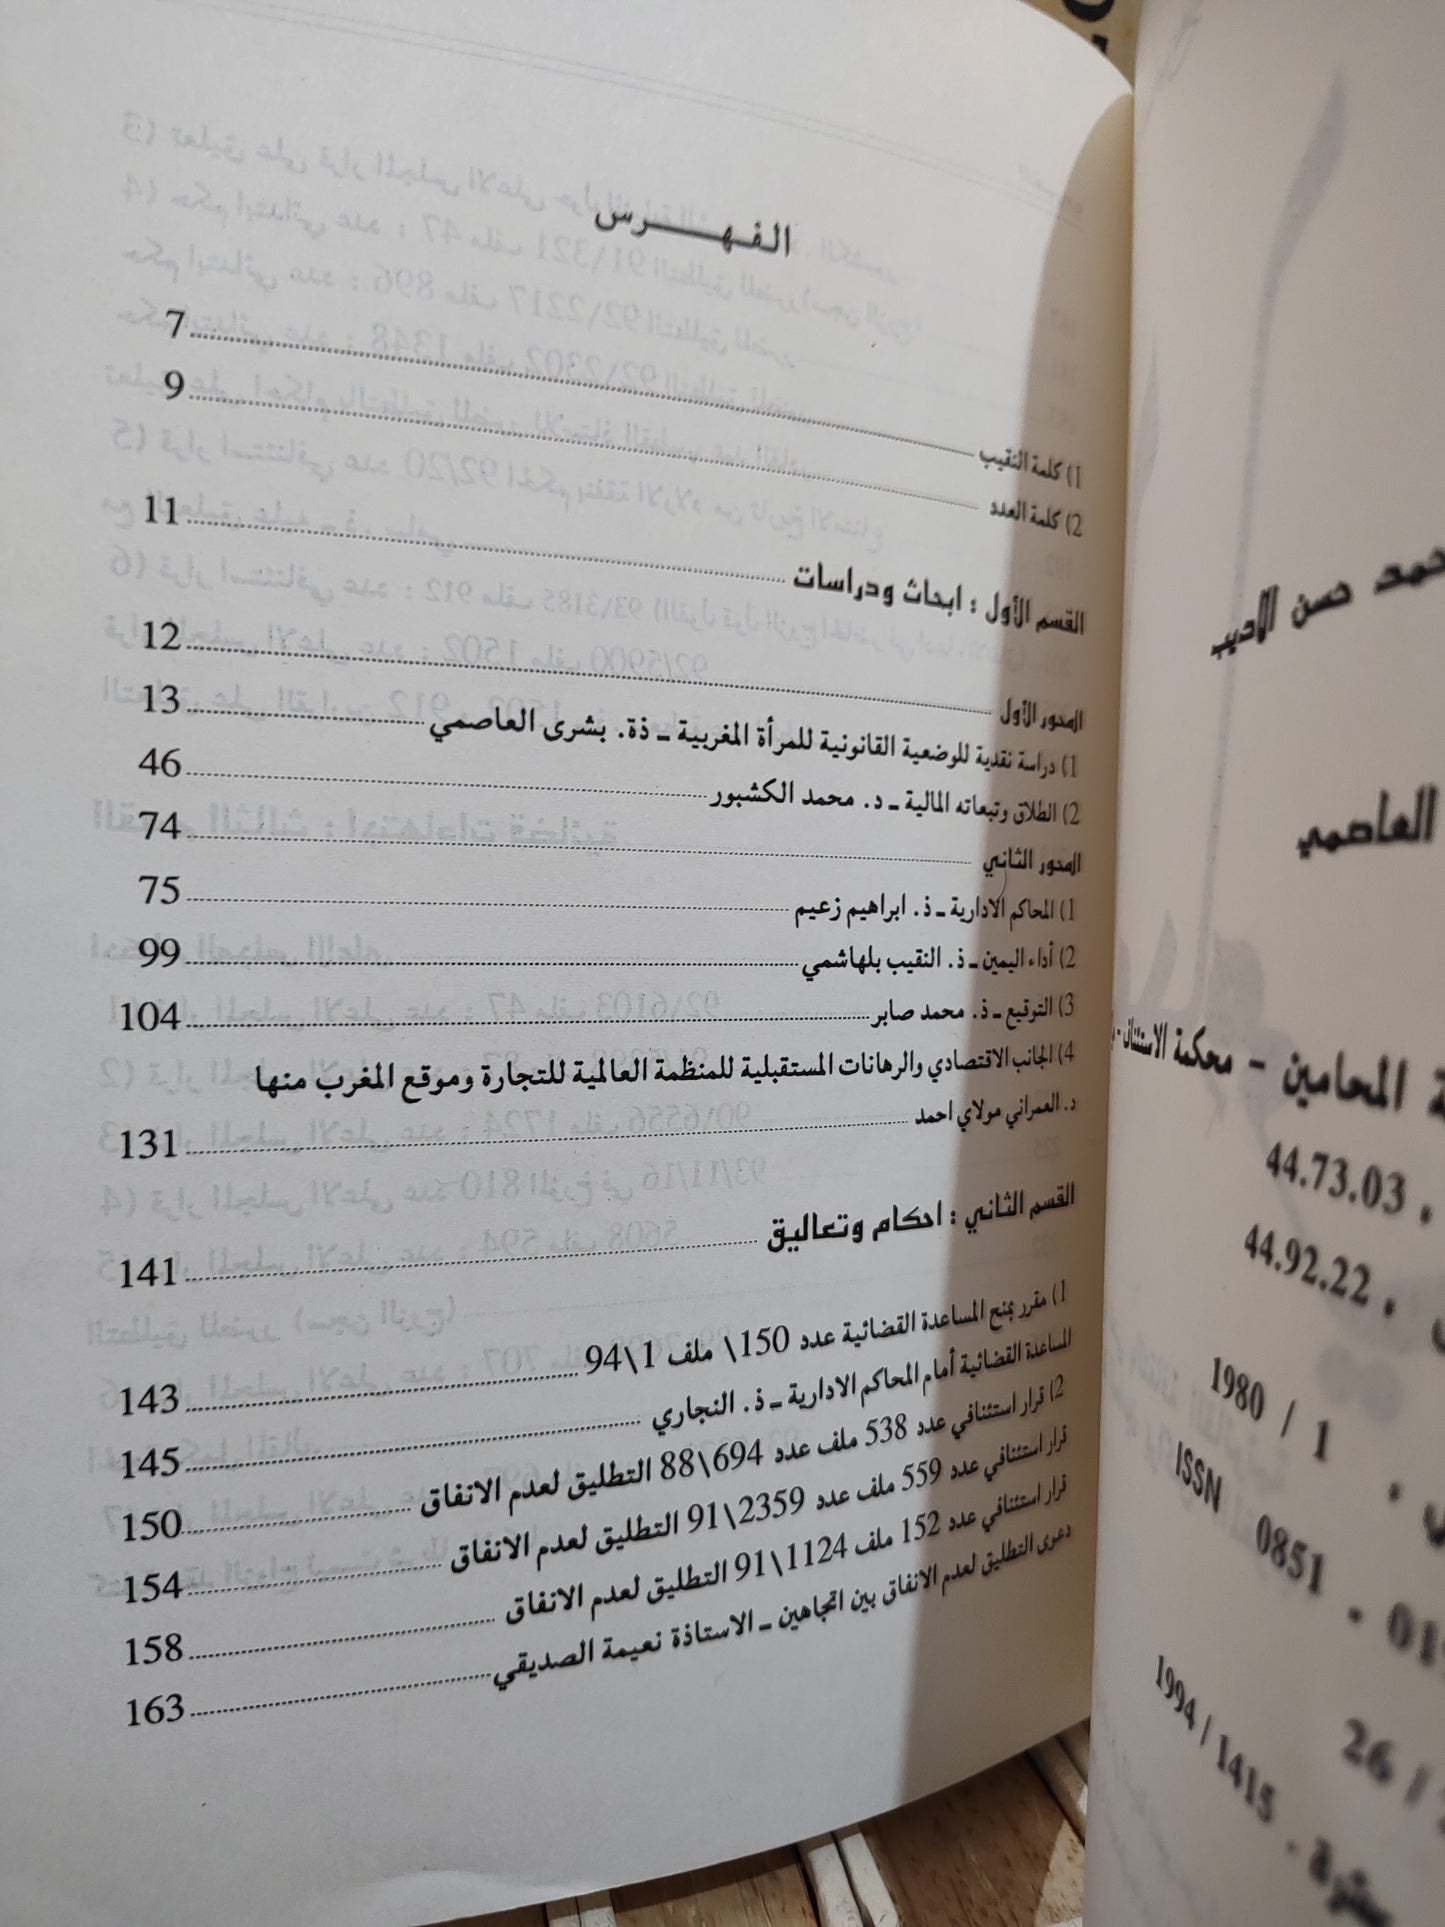 الفهرس
1) كلمة النقيب 7
2) كلمة العدد 9
القسم الأول : ابحاث ودراسات 11
المحور الأول 12
1) دراسة نقدية للوضعية القانونية للمرأة المغربية ـ ذة. بشرى العاصمي 13
2) الطلاق وتبعاته المالية ـ د. محمد الكشبور 46
المحور الثاني 74
1) المحاكم الادارية ـ ذ. ابراهيم زعيم 75
2) أداء اليمين ـ ذ. النقيب بلهاشمي 99
3) التوقيع ـ ذ. محمد صابر 104
4) الجانب الاقتصادي والرهانات المستقبلية للمنظمة العالمية للتجارة وموقع المغرب منها
د. العمراني مولاي احمد 131
القسم الثاني : احكام وتعاليق 141
1) مقرر بمنح المساعدة القضائية عدد 150\ ملف 1\94 143
المساعدة القضائية أمام المحاكم الادارية ـ ذ. النجاري 145
2) قرار استئنافي عدد 538 ملف عدد 694\88 التطليق لعدم الانفاق 150
قرار استئنافي عدد 559 ملف عدد 2359\91 التطليق لعدم الانفاق 154
قرار استئنافي عدد 152 ملف 1124\91 التطليق لعدم الانفاق 158
دعوى التطليق لعدم الانفاق بين اتجاهين ـ الاستاذة نعيمة الصديقي 163
حسن الاديب
العاصمي
المحامين - محكمة الاستئناف -
44.73.03
44.92.22
1 / 1980
ISSN 0851 -
26 /
1415 / 1994